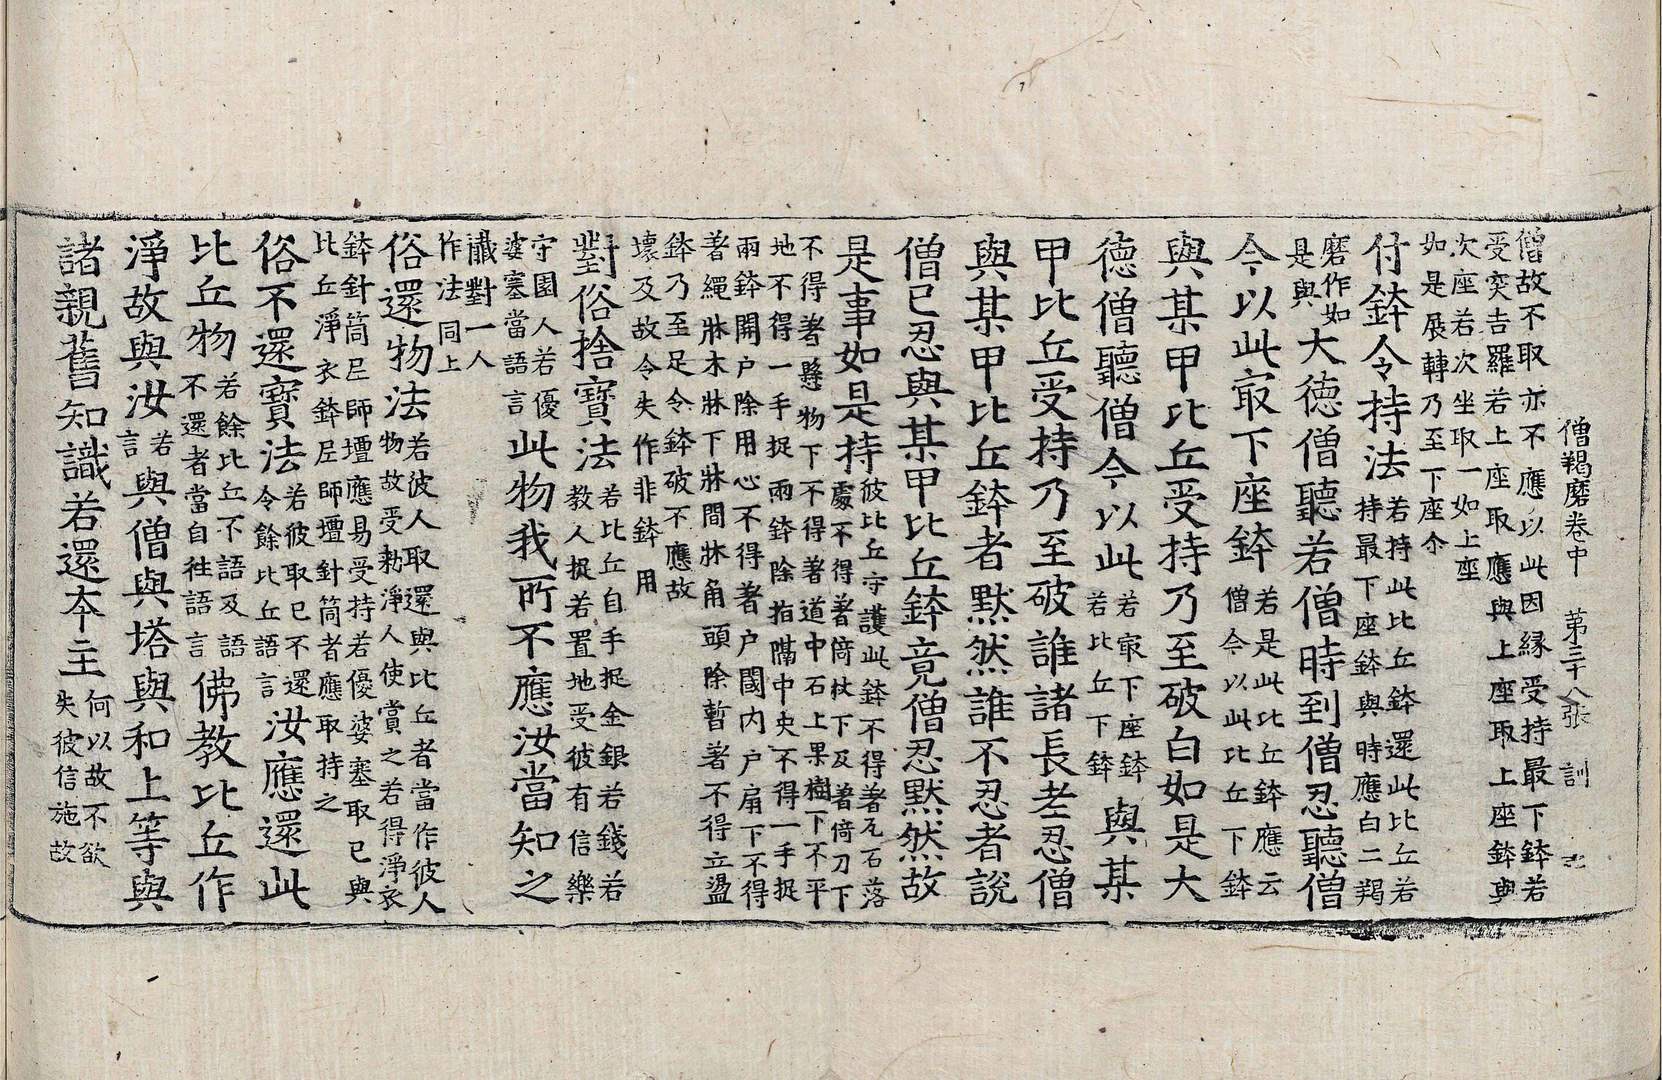 僧羯磨卷中　第三十八張　訓
僧故不取亦不應以此因縁受持最下鉢若
受突吉羅若上座取應與上座取上座鉢與
次座若次坐取一如上座
如是展轉乃至下座尒
付鉢令持法 若持此比丘鉢還此比丘若
持最下座鉢與時應白二羯
磨作如
是與 大徳僧聽若僧時到僧忍聽僧
今以此冣下座鉢 若是此比丘鉢應云
僧今以此比丘下鉢
與某甲比丘受持乃至破白如是大
徳僧聽僧今以此 若冣下座鉢
若比丘下鉢 與某
甲比丘受持乃至破誰諸長老忍僧
與某甲比丘鉢者默然誰不忍者說
僧已忍與某甲比丘鉢竟僧忍默然故
是事如是持 彼比丘守護此鉢不得著瓦石落
處不得著倚杖下及著倚刀下
不得著懸物下不得著道中石上果樹下不平
地不得一手捉兩鉢除指隔中央不得一手捉
兩鉢開户除用心不得著户閫内户扇下不得
著繩牀木牀下牀間牀角頭除暫著不得立盪
鉢乃至足令鉢破不應故
壞及故令失作非鉢用
對俗捨寶法 若比丘自手捉金銀若錢若
教人捉若置地受彼有信樂
守園人若優
婆塞當語言 此物我所不應汝當知之
懺對一人
作法同上
俗還物法 若彼人取還與比丘者當作彼人
物故受勑淨人使賞之若得淨衣
鉢針筒尼師壇應易受持若優婆塞取已與
比丘淨衣鉢尼師壇針筒者應取持之
俗不還寶法 若彼取已不還
令餘比丘語言 汝應還此
比丘物 若餘比丘不語及語
不還者當自往語言 佛教比丘作
淨故與汝 若
言 與僧與塔與和上等與
諸親舊知識若還夲主 何以故不欲
失彼信施故